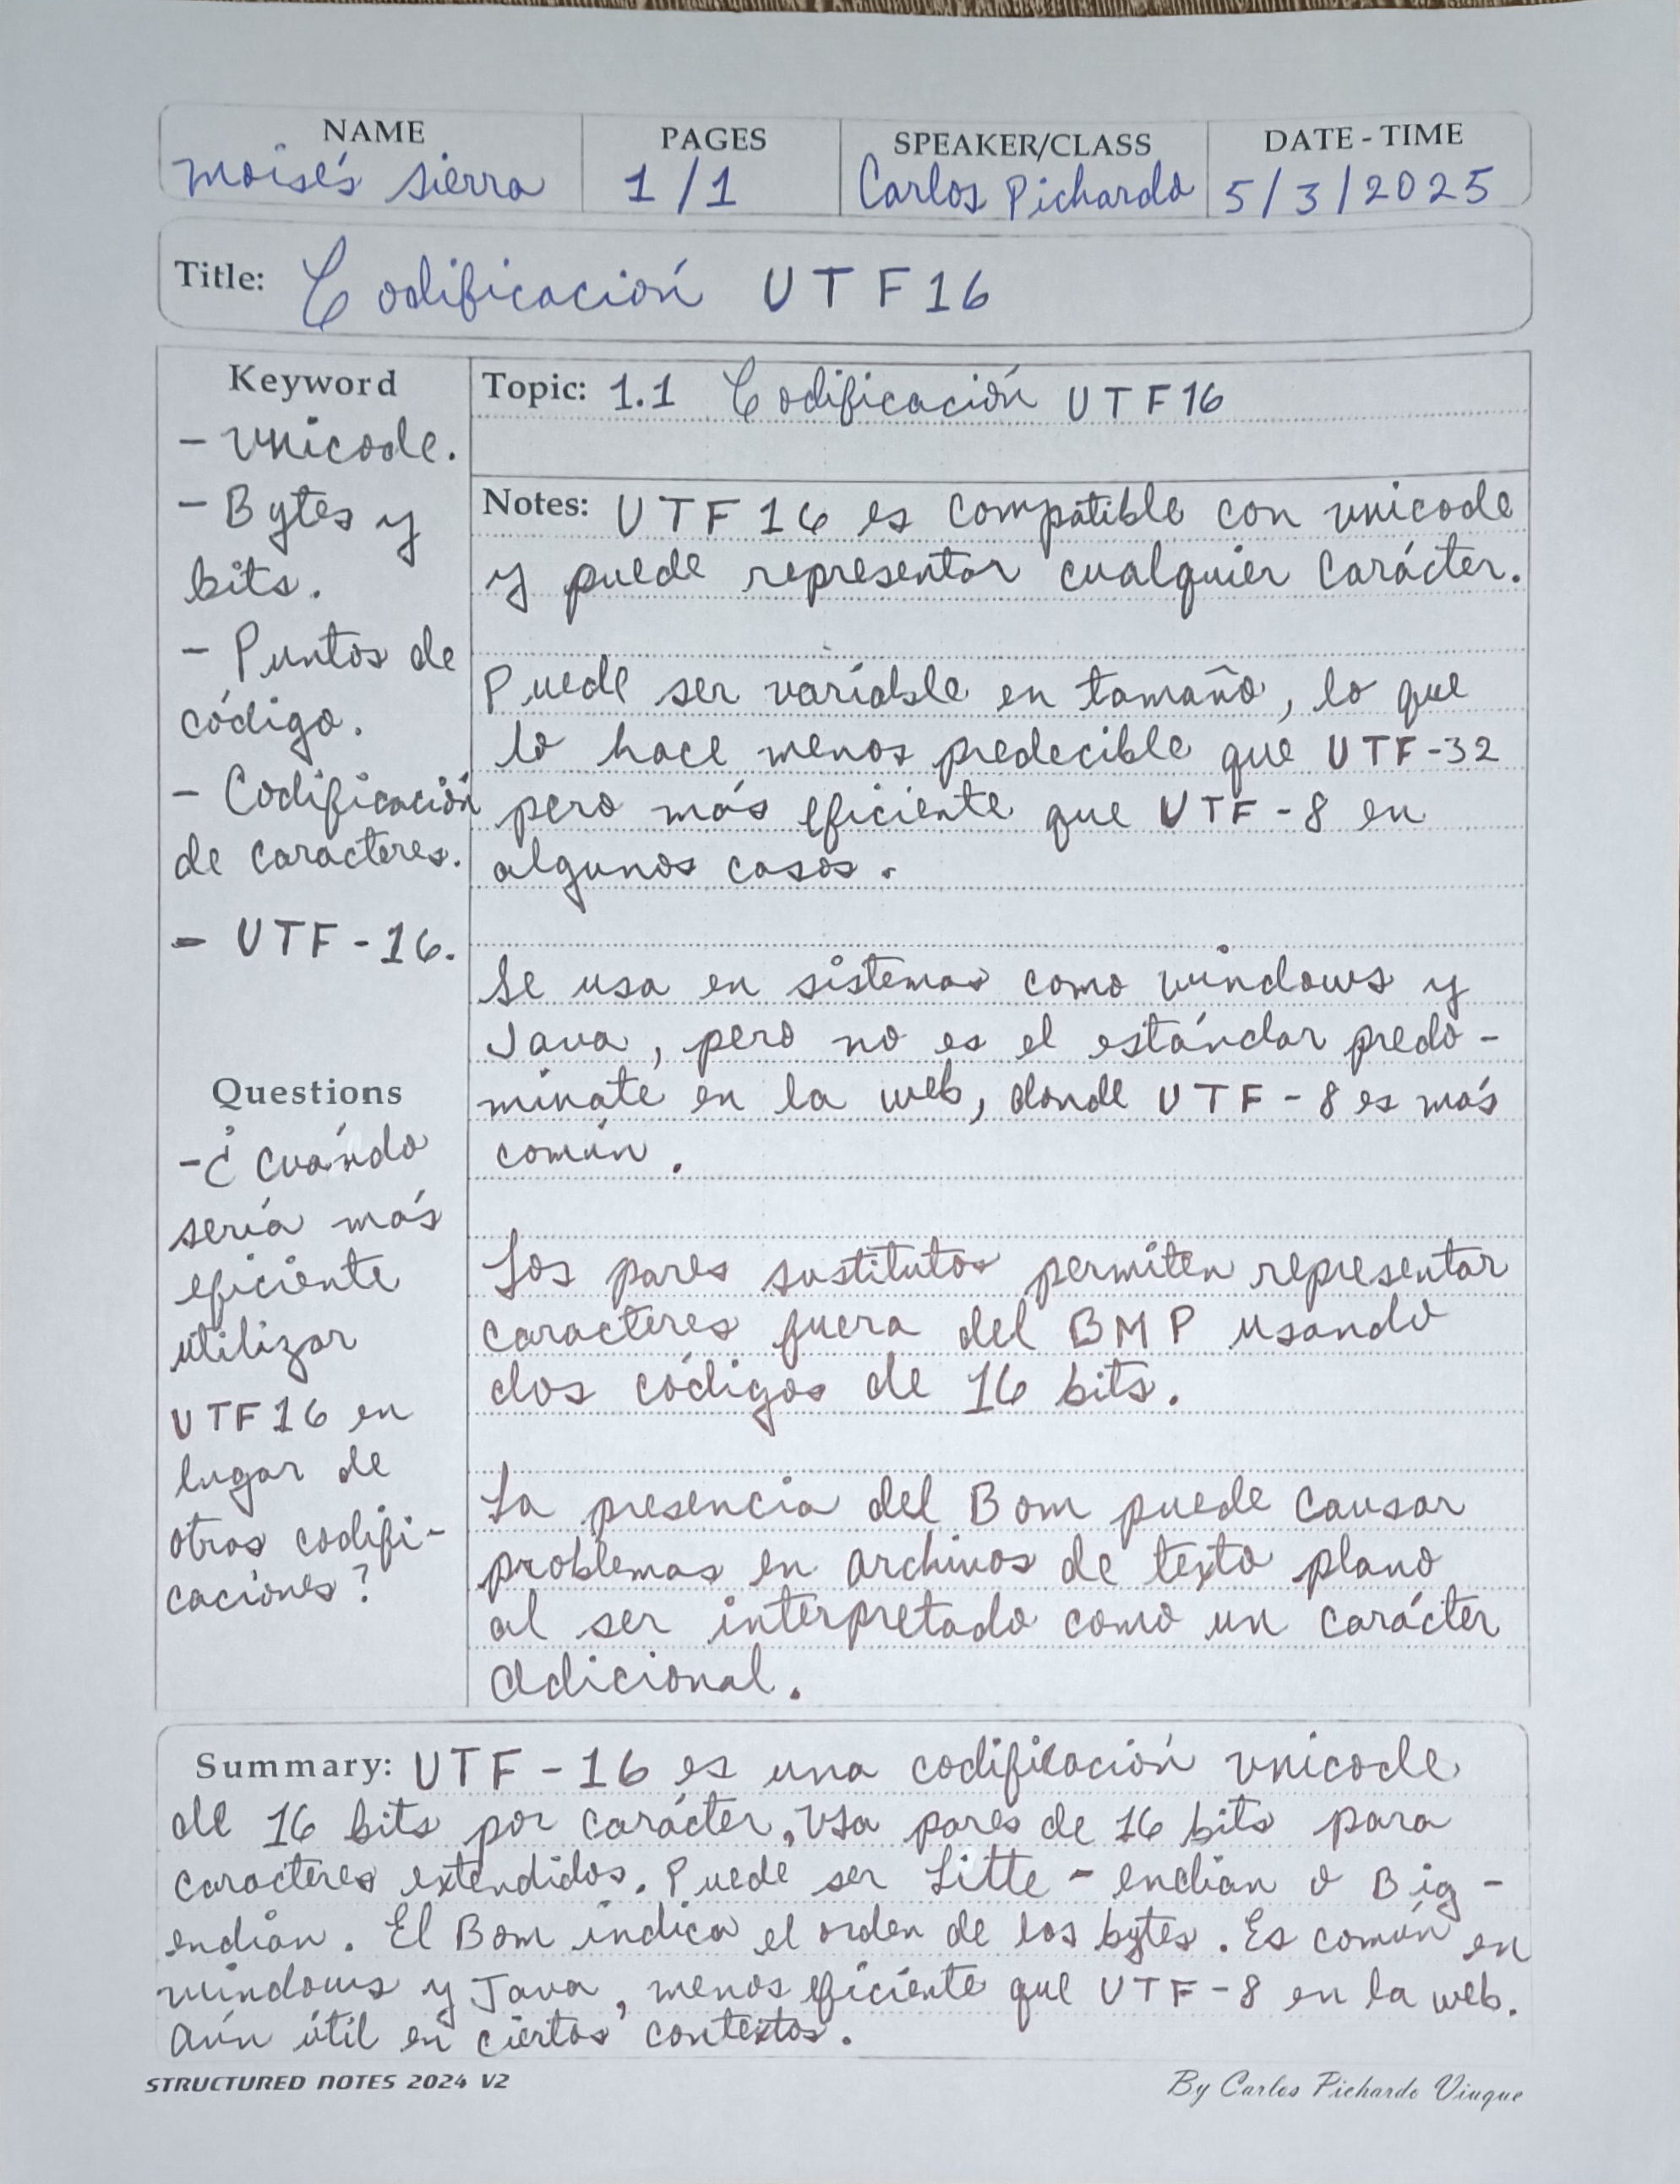 NAME PAGES SPEAKER/CLASS DATE - TIME
Moisés Sierra 1/1 Carlos Pichardo 5/3/2025
Title: Codificación UTF16
Keyword
- Unicode.
- Bytes y
bits.
- Puntos de
código.
- Codificación
de caracteres.
- UTF-16.
Questions
- ¿cuándo
sería más
eficiente
utilizar
UTF16 en
lugar de
otras codifi-
caciones?
Topic: 1.1 Codificación UTF16
Notes: UTF16 es compatible con unicode
y puede representar cualquier carácter.
Puede ser variable en tamaño, lo que
lo hace menos predecible que UTF-32
pero más eficiente que UTF-8 en
algunos casos.
Se usa en sistemas como windows y
Java, pero no es el estándar predo-
minate en la web, donde UTF-8 es más
común.
Los pares sustitutos permiten representar
caracteres fuera del BMP usando
dos códigos de 16 bits.
La presencia del Bom puede causar
problemas en archivos de texto plano
al ser interpretado como un carácter
adicional.
Summary: UTF-16 es una codificación unicode
de 16 bits por carácter, Usa pares de 16 bits para
caracteres extendidos. Puede ser Litte-endian o Big-
endian. El Bom indica el orden de los bytes. Es común en
windows y Java, menos eficiente que UTF-8 en la web.
Aún útil en ciertos contextos.
STRUCTURED NOTES 2024 V2 By Carlos Pichardo Viuque